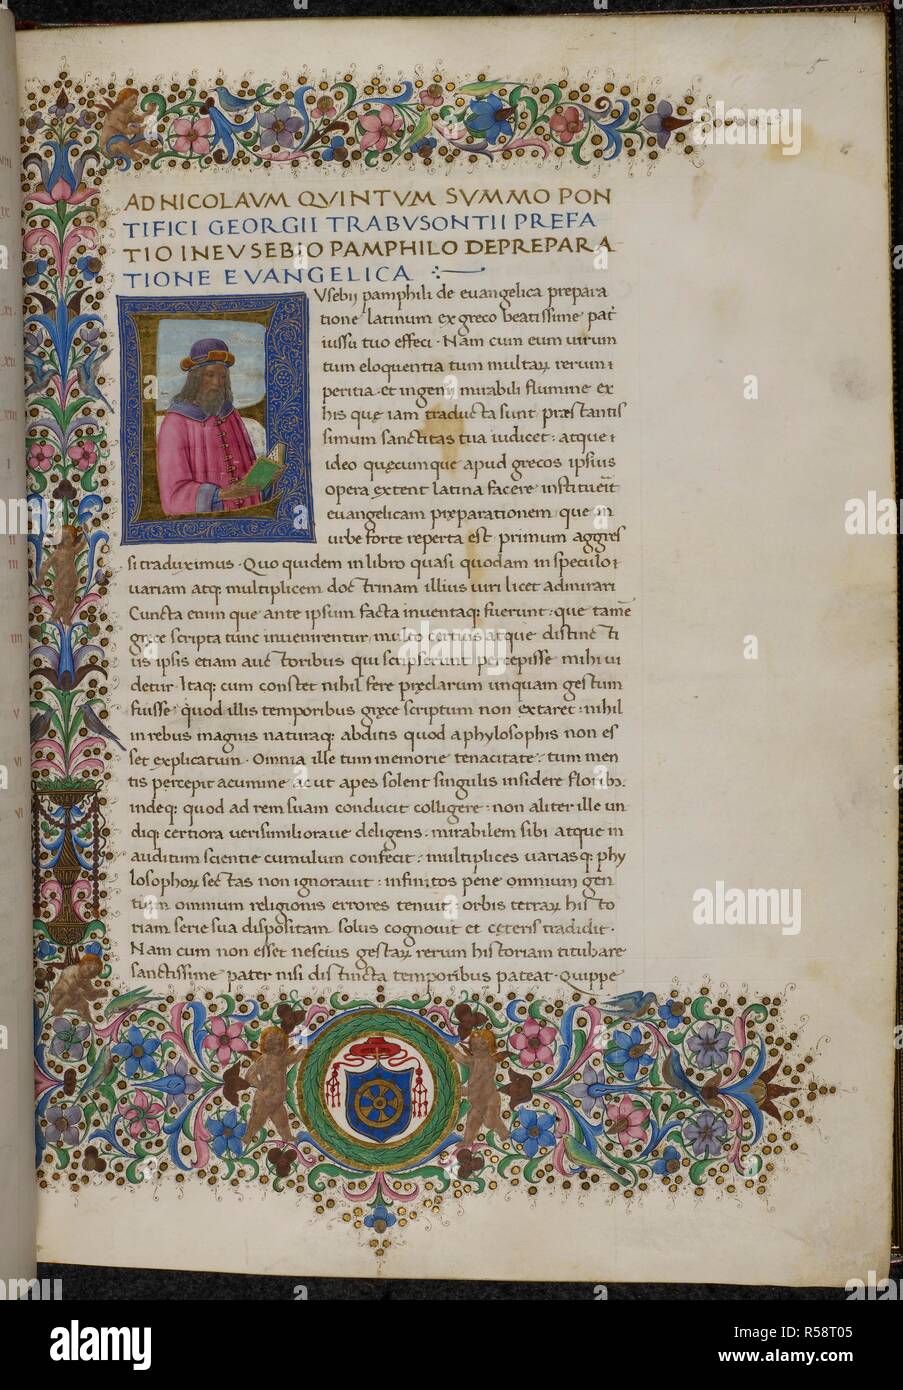 5
AD NICOLAVM QVINTVM SVMMO PON
TIFICI GEORGII TRABVSONTII PREFA
TIO IN EVSEBIO PAMPHILO DE PREPARA
TIONE EVANGELICA
Vsebij pamphili de euangelica prepara
tione latinum ex greco beatissime pat̄
iussu tuo effeci · Nam cum eum uirum
tum eloquentia tum multaꝝ rerum
peritia · et ingenij mirabili flumine ex
his que iam traducta sunt præstantis
simum sanctitas tua iudicet : atque
ideo quęcumque apud grecos ipsius
opera extent latina facere instituerit
euangelicam pręparationem que in
urbe forte reperta est primum aggres
si traduximus · Quo quidem in libro quasi quodam in speculo
uariam atq; multiplicem doctrinam illius uiri licet admirari
Cuncta enim que ante ipsum facta inuentaq; fuerunt · que tamē
gręce scripta tunc inuenirentur multo certius atque distincti
us ipsis etiam auctoribus qui scripserunt percepisse mihi ui
detur · Itaq; cum constet nihil fere pręclarum unquam gestum
fuisse · quod illis temporibus gręce scriptum non extaret · nihil
in rebus magnis naturaq; abditis quod a phylosophis non es
set explicatum · Omnia ille tum memorie tenacitate · tum men
tis percepit acumine ac ut apes solent singulis insidere floribꝫ.
indeq; quod ad rem suam conducit colligere · non aliter ille un
diq; certiora uerisimilioraue deligens · mirabilem sibi atque in
auditum scientie cumulum confecit : multiplices uariasq; phy
losophoꝝ sectas non ignorauit : infinitos pene omnium gen
tium omnium religionis errores tenuit · orbis terraꝝ histo
riam serie sua dispositam solus cognouit et ceteris tradidit ·
Nam cum non esset nescius gestaꝝ rerum historiam titubare
sanctissime pater nisi distincta temporibus pateat · Quippe
alamy
Image ID: R58T05
www.alamy.com